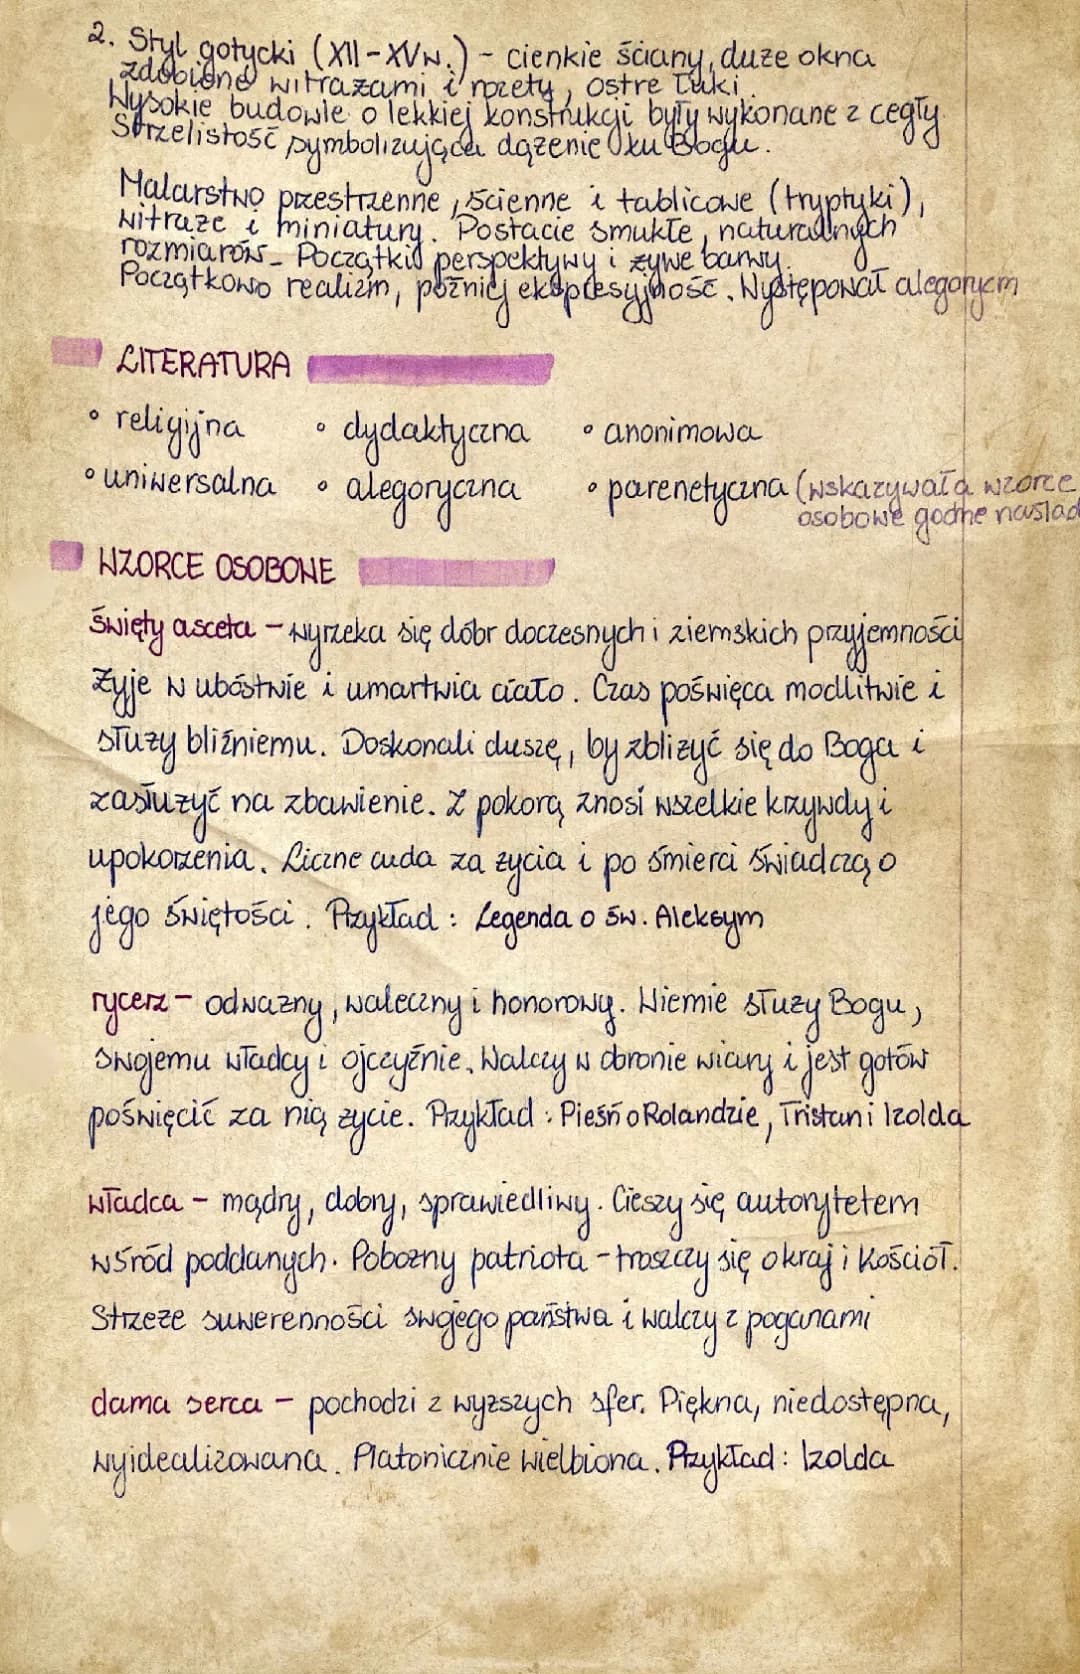 2. Styl gotycki (XII-XVw.) - cienkie ściany, duże okna
zdobione witrażami i rozety, ostre łuki.
Wysokie budowle o lekkiej konstrukcji były wykonane z cegły.
Strzelistość symbolizująca dążenie ku Bogu.
Malarstwo przestrzenne, ścienne i tablicowe (tryptyki),
witraże i miniatury. Postacie smukłe, naturalnych
rozmiarów. Początki perspektywy i żywe barwy.
Początkowo realizm, później ekspresyjność. Występował alegoryzm
LITERATURA
• religijna • dydaktyczna • anonimowa
• uniwersalna • alegoryczna • parenetyczna (wskazywała wzorce
osobowe godne naślad
WZORCE OSOBOWE
święty asceta - wyrzeka się dóbr doczesnych i ziemskich przyjemności
Żyje w ubóstwie i umartwia ciało. Czas poświęca modlitwie i
służy bliźniemu. Doskonali duszę, by zbliżyć się do Boga i
zasłużyć na zbawienie. Z pokorą znosi wszelkie krzywdy i
upokorzenia. Liczne cuda za życia i po śmierci świadczą o
jego świętości. Przykład: Legenda o św. Aleksym
rycerz - odważny, waleczny i honorowy. Wiernie służy Bogu,
swojemu władcy i ojczyźnie. Walczy w obronie wiary i jest gotów
poświęcić za nią życie. Przykład: Pieśń o Rolandzie, Tristan i Izolda
władca - mądry, dobry, sprawiedliwy. Cieszy się autorytetem
wśród poddanych. Pobożny patriota - troszczy się o kraj i Kościół.
Strzeże suwerenności swojego państwa i walczy z poganami
dama serca - pochodzi z wyższych sfer. Piękna, niedostępna,
wyidealizowana. Platonicznie wielbiona. Przykład: Izolda